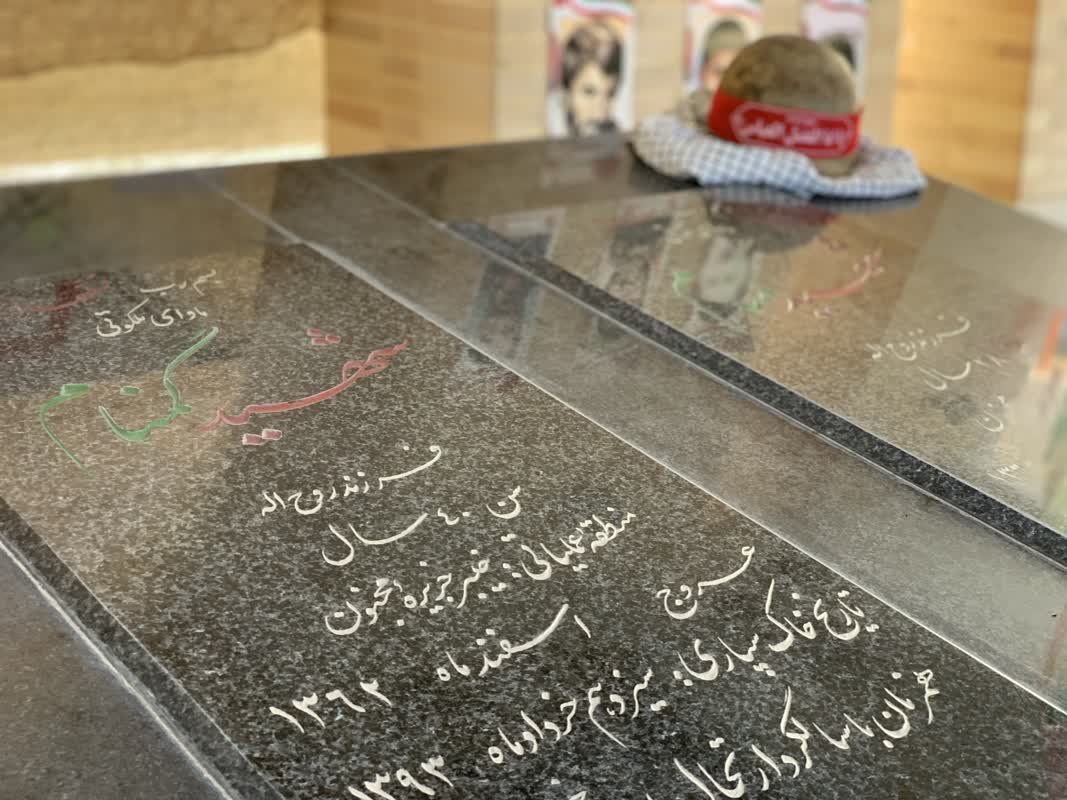 بسم رب
ماوای ملکوتی
شهید گمنام
فرزند روح اله
سن ۴۰ سال
منطقه عملیاتی: خیبر جزیره مجنون
عروج اسفند ماه ۱۳۶۲
تاریخ خاک سپاری: سیزدهم خرداد ماه ۱۳۹۳
همزمان با سالگرد ارتحال
شهید
فرزند روح اله
سال
یا ابالفضل العباس